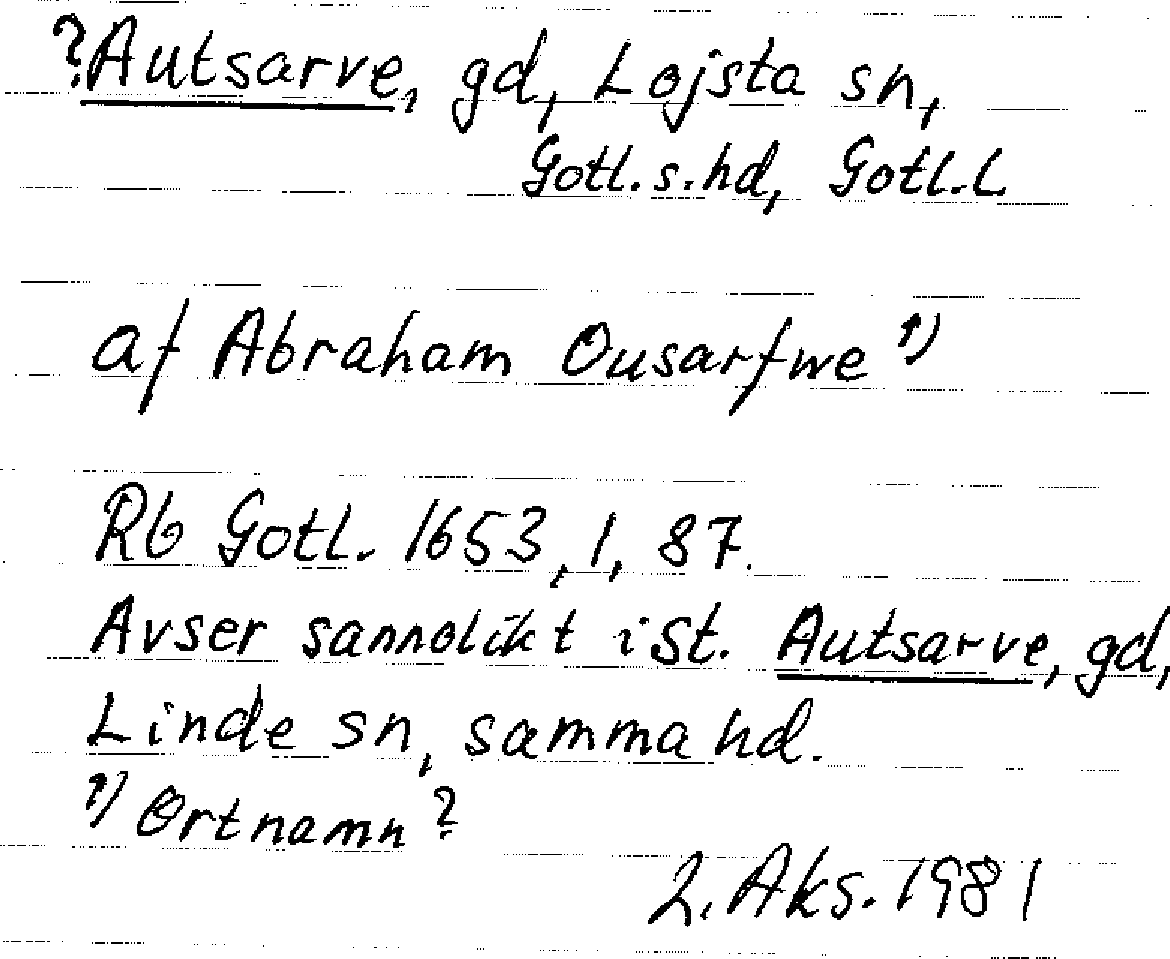 ?Autsarve, gd, Lojsta sn,
Gotl. s. hd, Gotl. L.
af Abraham Ousarfwe 1)
Rb Gotl. 1653, 1, 87.
Avser sannolikt i st. Autsarve, gd,
Linde sn, samma hd.
1) Ortnamn?
2. Aks. 1981